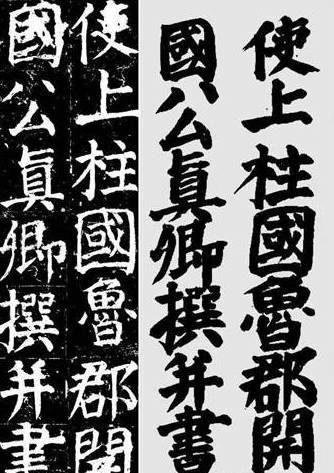 使上柱國魯郡開
國公真卿撰并書
使上柱國魯郡開
國公真卿撰并書